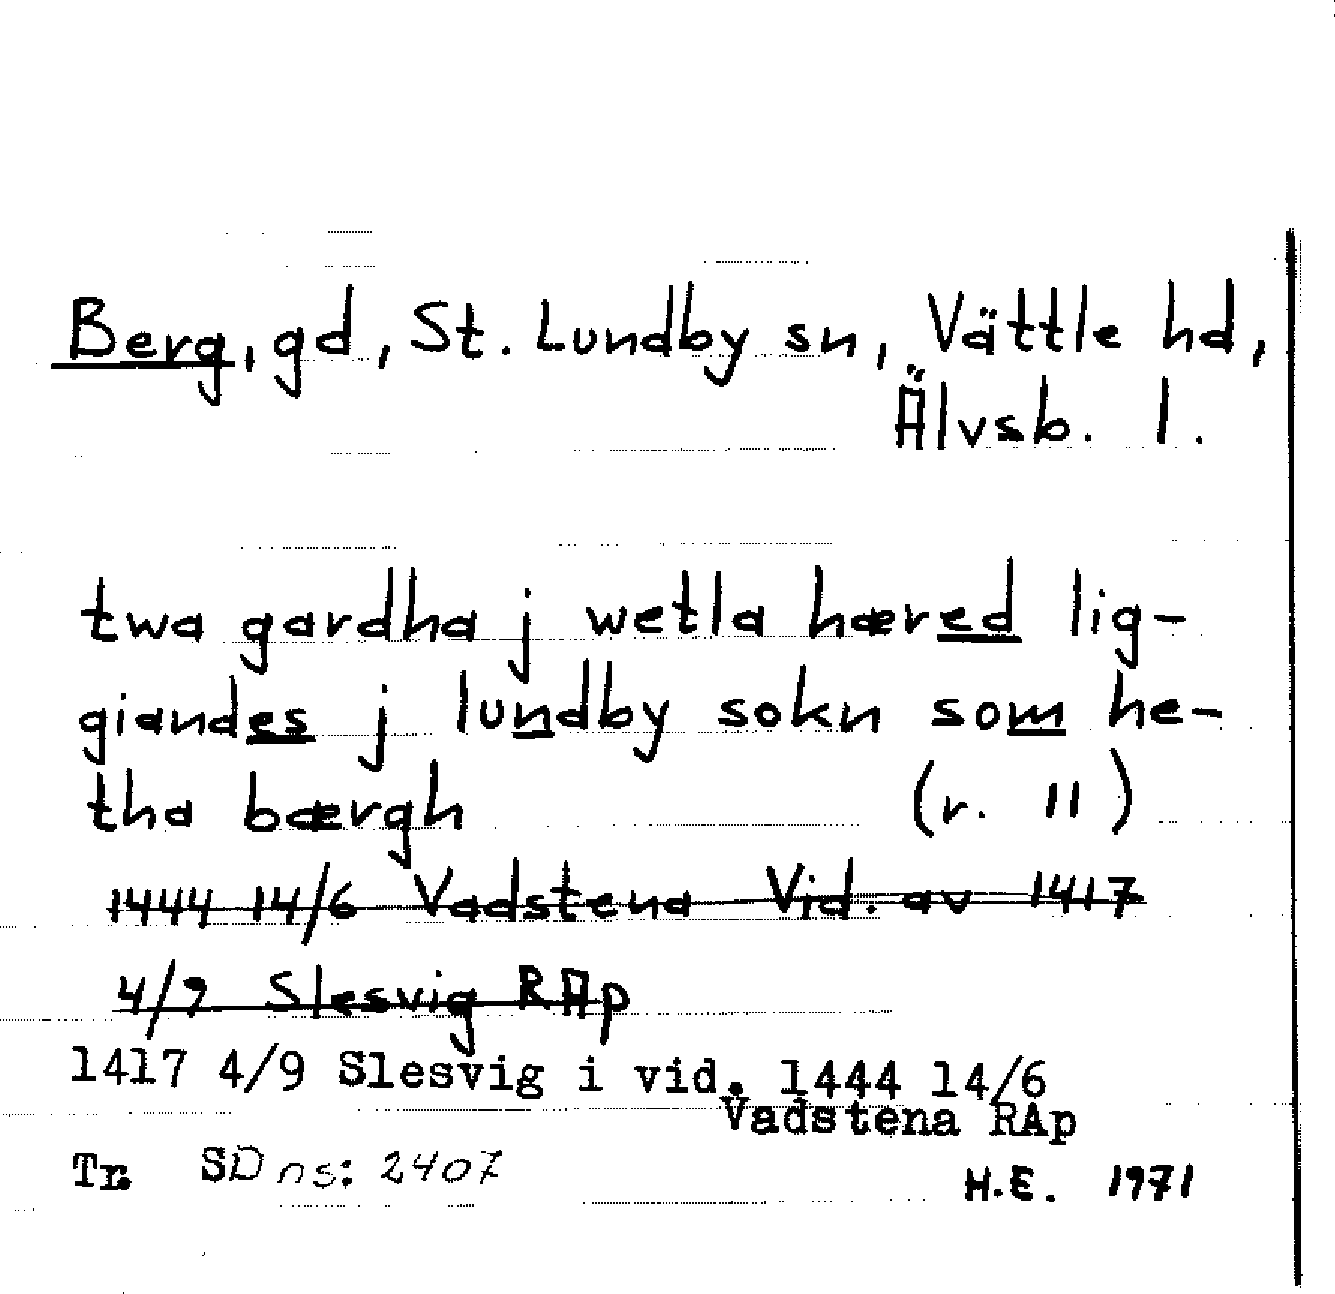 Berg, gd, St. Lundby sn, Vättle hd,
Älvsb. l.
twa gardha j wetla hæred lig-
giandes j lundby sokn som he-
tha bærgh (r. 11)
1444 14/6 Vadstena Vid. av 1417
4/9 Slesvig RAp
1417 4/9 Slesvig i vid. 1444 14/6
Vadstena RAp
Tr. SDns: 2407
H.E. 1971